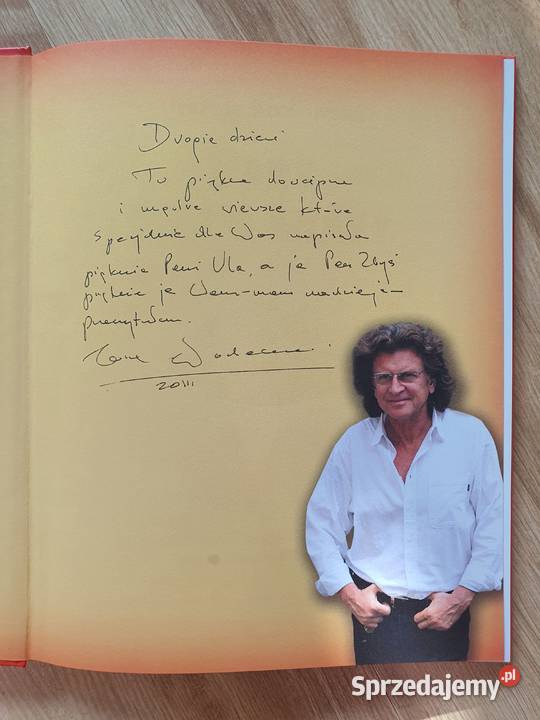 Drogie dzieci
Tu piękne dowcipne
i mądre wiersze które
specjalnie dla Was napisała
pięknie Pani Ula, a ja Pan Zbyś
pięknie je Wam - mam nadzieję -
przeczytałem.
Wodecki
2011
Sprzedajemy.pl